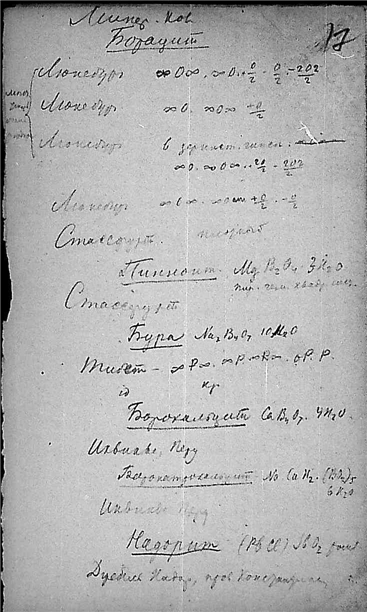 Минер. Ков.
17
Борацит
Люнебург ∞O∞. ∞O. +O/2 -O/2. -2O2/2
Люнебург ∞O. ∞O∞ +O/2
Люнебург в зернист. гипсе.
∞O. ∞O∞. 2O2/2
Люнебург ∞O∞. ∞O +O/2. -O/2
Стассфурт. плотный
Пинноит. Mg B2O4 3H2O
Стассфурт
Бура Na2B4O7 10H2O
Тибет - ∞P∞. ∞P ∞R∞. 0P. P.
id кр
Борокальцит CaB4O7. 4H2O.
Иквикве, Перу
Боронатрокальцит Na Ca
6H2O
Иквикве Перу
Надорит (PbCl) SbO2
Джебель Надор, пров Константина